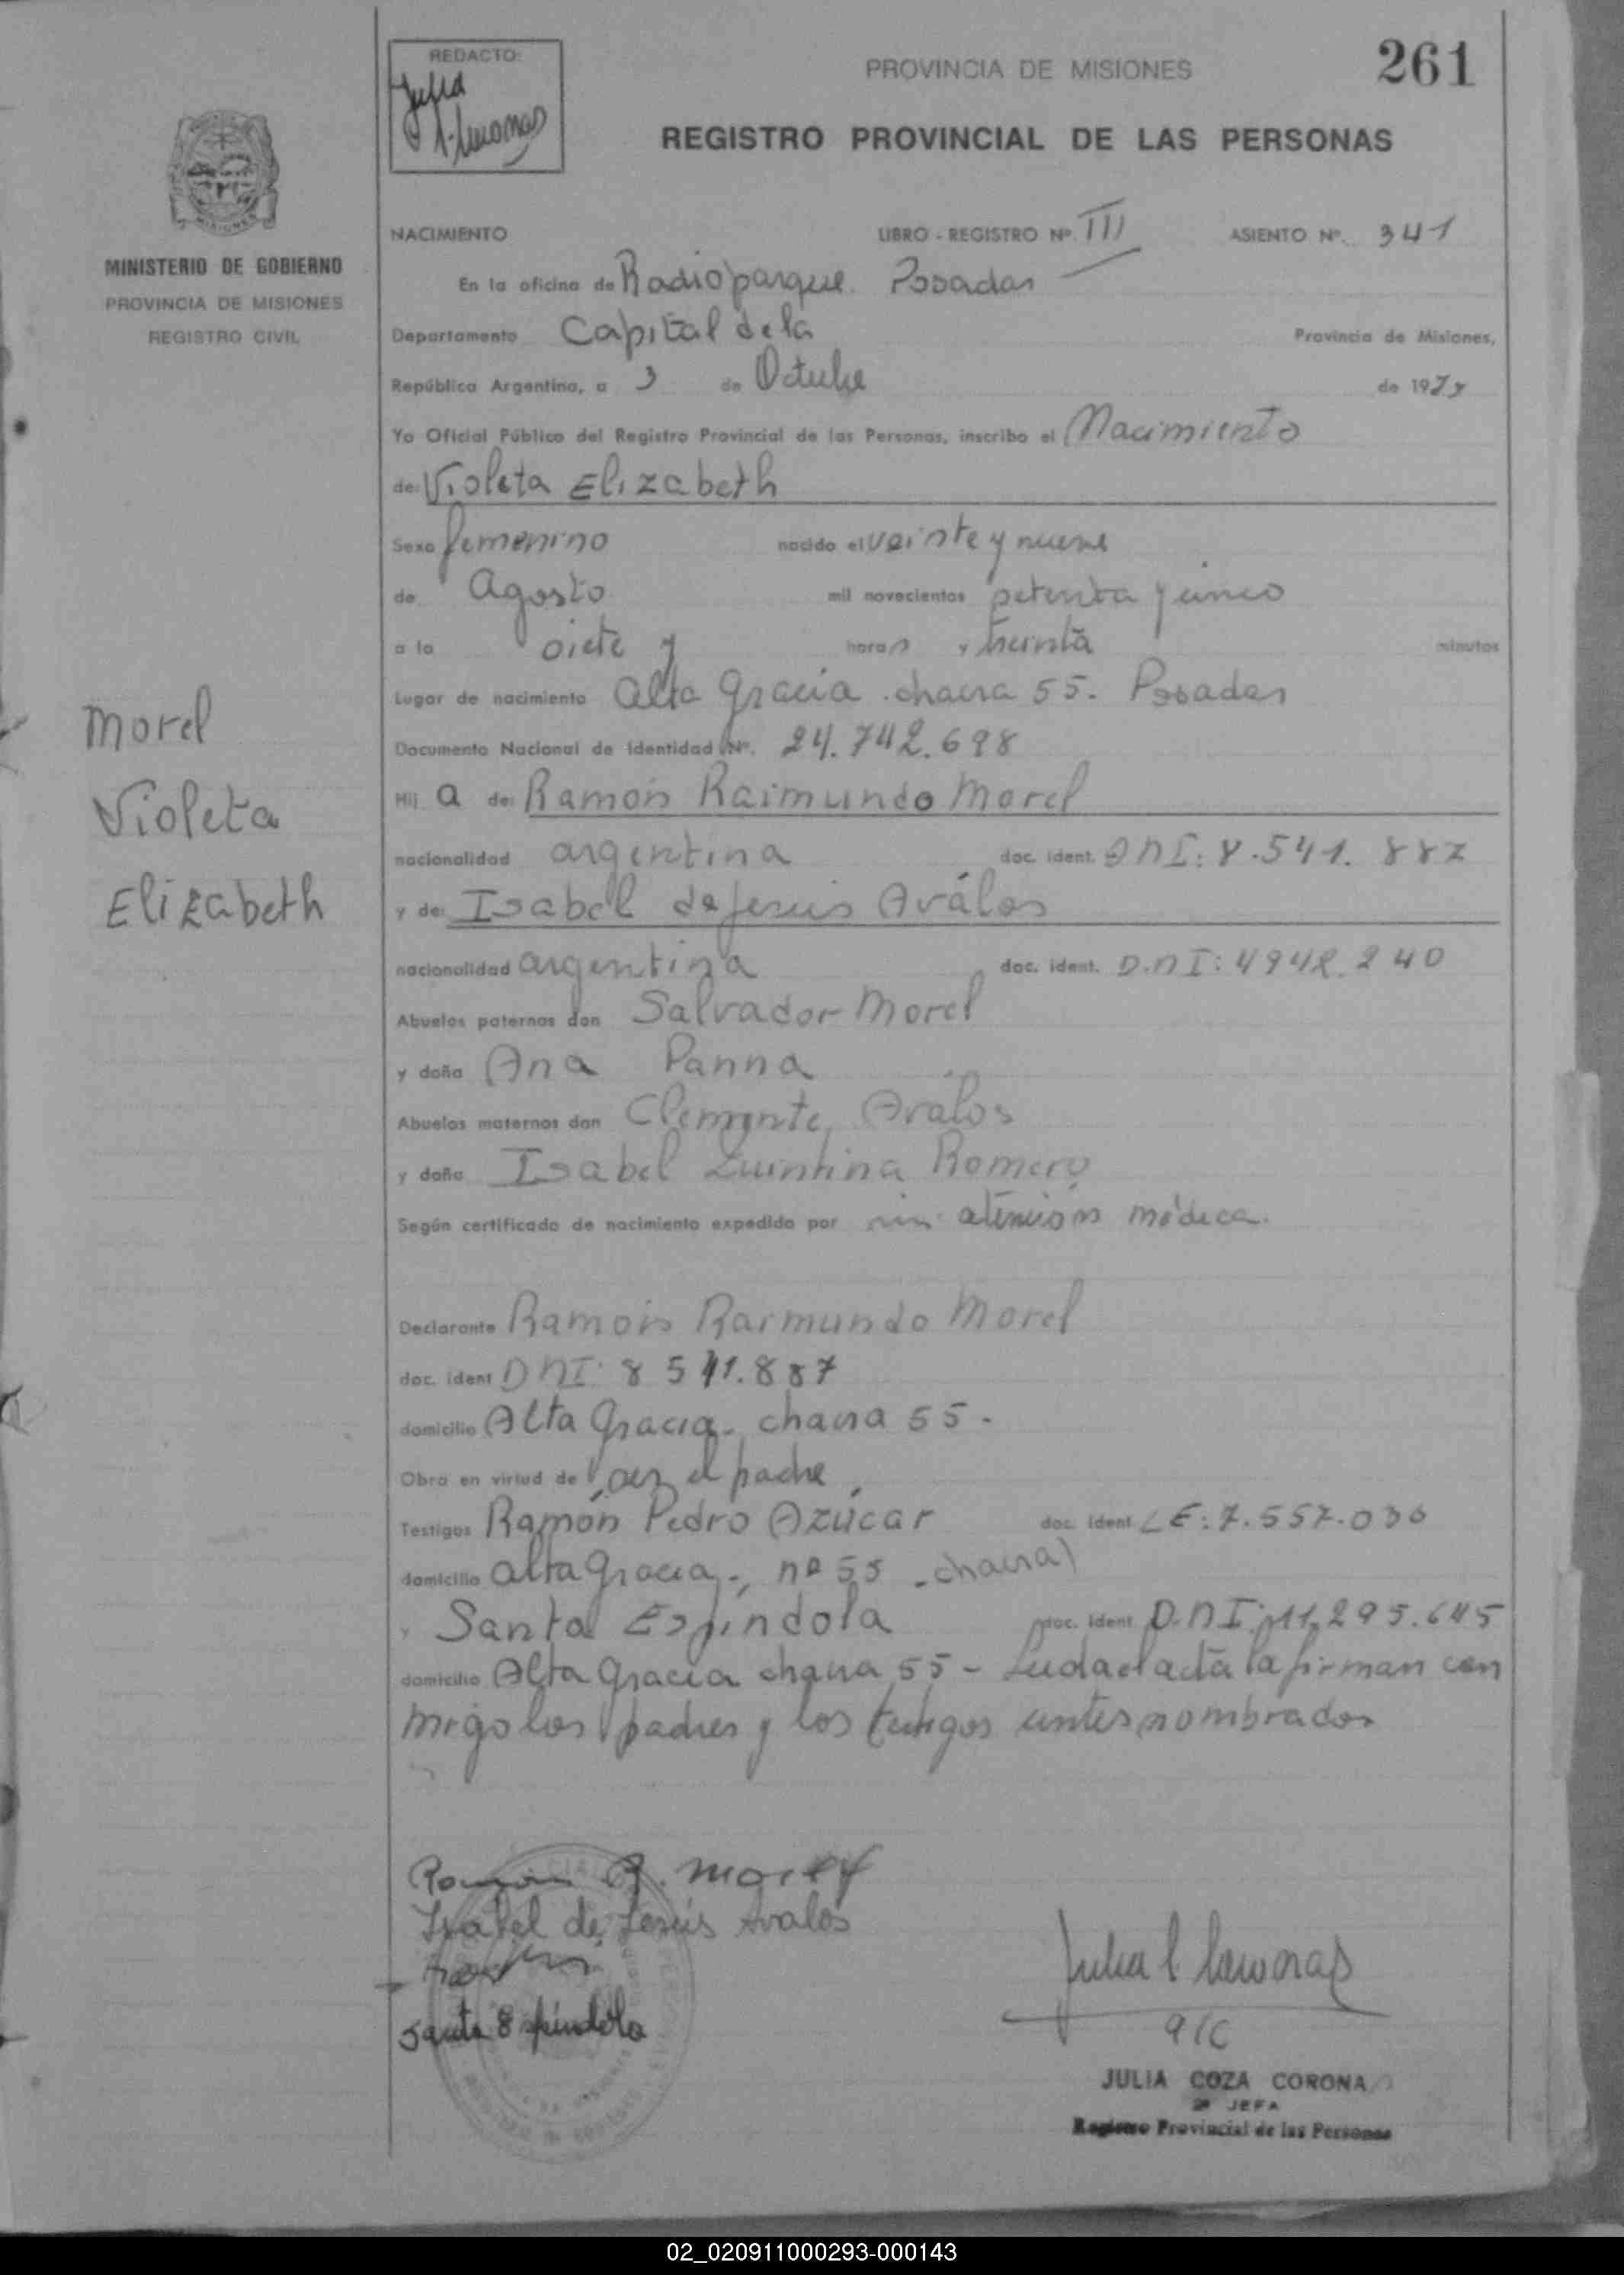 REDACTO:
Julia
261
PROVINCIA DE MISIONES
REGISTRO PROVINCIAL DE LAS PERSONAS
MISIONES
MINISTERIO DE GOBIERNO
PROVINCIA DE MISIONES
REGISTRO CIVIL
NACIMIENTO LIBRO - REGISTRO Nº. III ASIENTO Nº. 341
En la oficina de Radioparque. Posadas
Departamento Capital de la Provincia de Misiones,
República Argentina, a 3 de Octubre de 19
Yo Oficial Público del Registro Provincial de las Personas, inscribo el Nacimiento
de: Violeta Elizabeth
Sexo femenino nacido el veinte y nueve
de Agosto mil novecientos setenta y cinco
a la siete y horas y treinta minutos
Lugar de nacimiento Alta Gracia chacra 55. Posadas
Documento Nacional de Identidad Nº. 24.742.698
Hij a de: Ramón Raimundo Morel
nacionalidad argentina doc. ident. DNI: 8.541.887
y de: Isabel de Jesús Aválos
nacionalidad argentina doc. ident. D.N I: 4942.240
Abuelos paternos don Salvador Morel
y doña Ana Panna
Abuelos maternos don Clemente Aválos
y doña Isabel Quintina Romero
Según certificado de nacimiento expedido por sin atención médica.
Declarante Ramón Raimundo Morel
doc. ident DNI: 8 541.887
domicilio Alta Gracia - chacra 55 -
Obra en virtud de ser el padre
Testigos Ramón Pedro Azúcar doc. ident LE: 7.557.036
domicilio Alta Gracia -, nº 55 - chacra)
y Santa Espíndola doc. ident D.N I: 11.295.645
domicilio Alta Gracia chacra 55 - Leida el acta la firman con
migo los padres y los testigos antes nombrados
Morel
Violeta
Elizabeth
Ramón R. Morel
Isabel de Jesús Avalos
Santa Espíndola
Julia C
a/c
JULIA COZA CORONA
2ª JEFA
Registro Provincial de las Personas
02_020911000293-000143